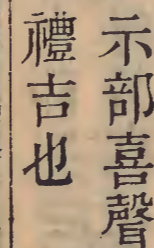 示部喜聲
禮吉也